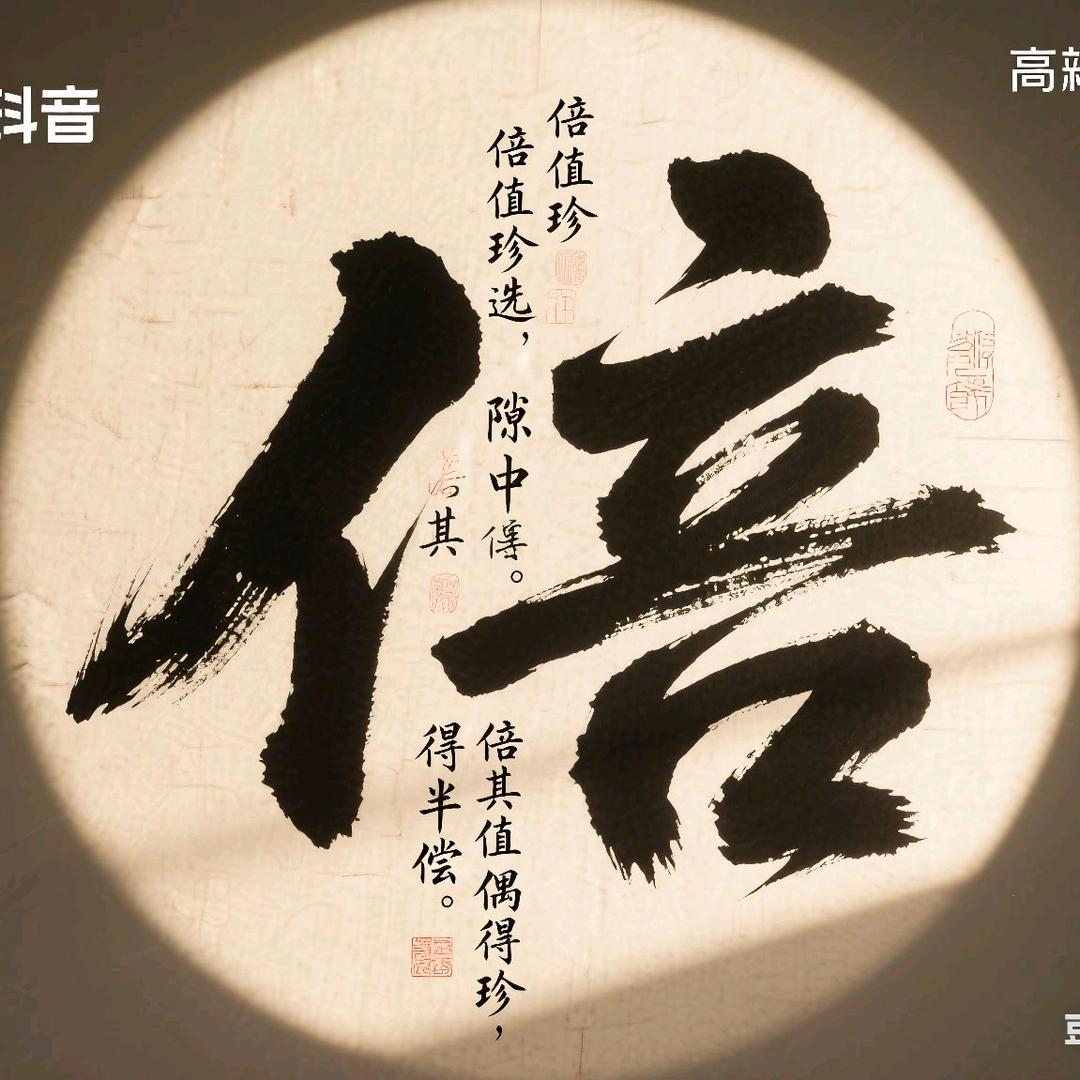 抖音
高新
倍
倍值珍
倍值珍选，
隙中得。
其
倍其值偶得珍，
得半偿。